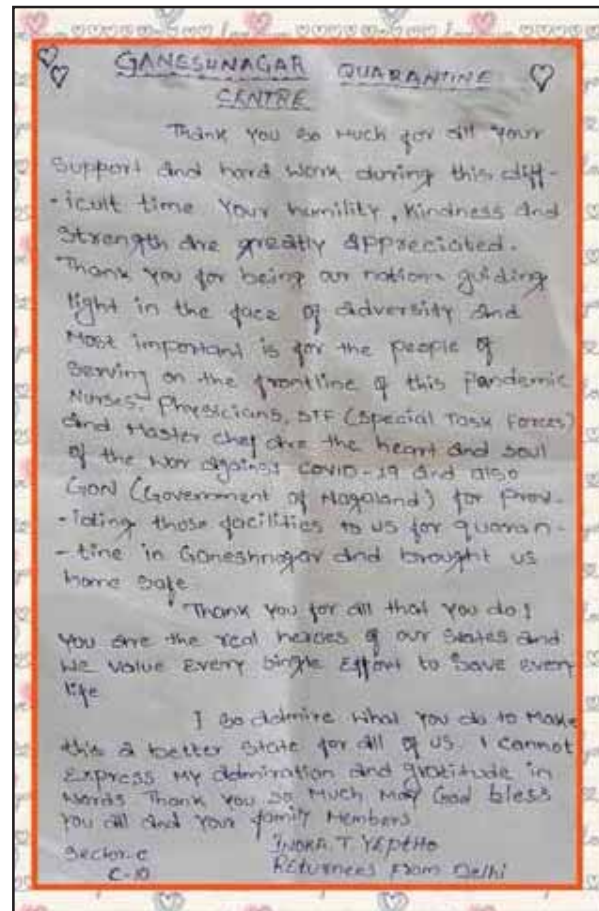 GANESHNAGAR QUARANTINE
CENTRE
Thank You So Much for all Your
Support and hard work during this diff-
-icult time Your humility, Kindness and
Strength are greatly Appreciated.
Thank You for being our nations guiding
light in the face of adversity and
Most important is for the people of
Serving on the frontline of this Pandemic
Nurses, Physicians, STF (Special Task Forces)
and Master chef are the heart and soul
of the War against COVID-19 and also
GON (Government of Nagaland) for Prov-
-iding those facilities to us for quaran-
-tine in Ganeshnagar and brought us
home Safe
Thank You for all that You do!
You are the real heroes of our States and
We Value Every Single Effort to Save Every
life
I So admire What You do to Make
this a better State for all of us. I cannot
Express My admiration and gratitude in
Words Thank You So Much May God bless
You all and Your family Members
Sector-C T. YEPTHO
C-10 Returnees From Delhi